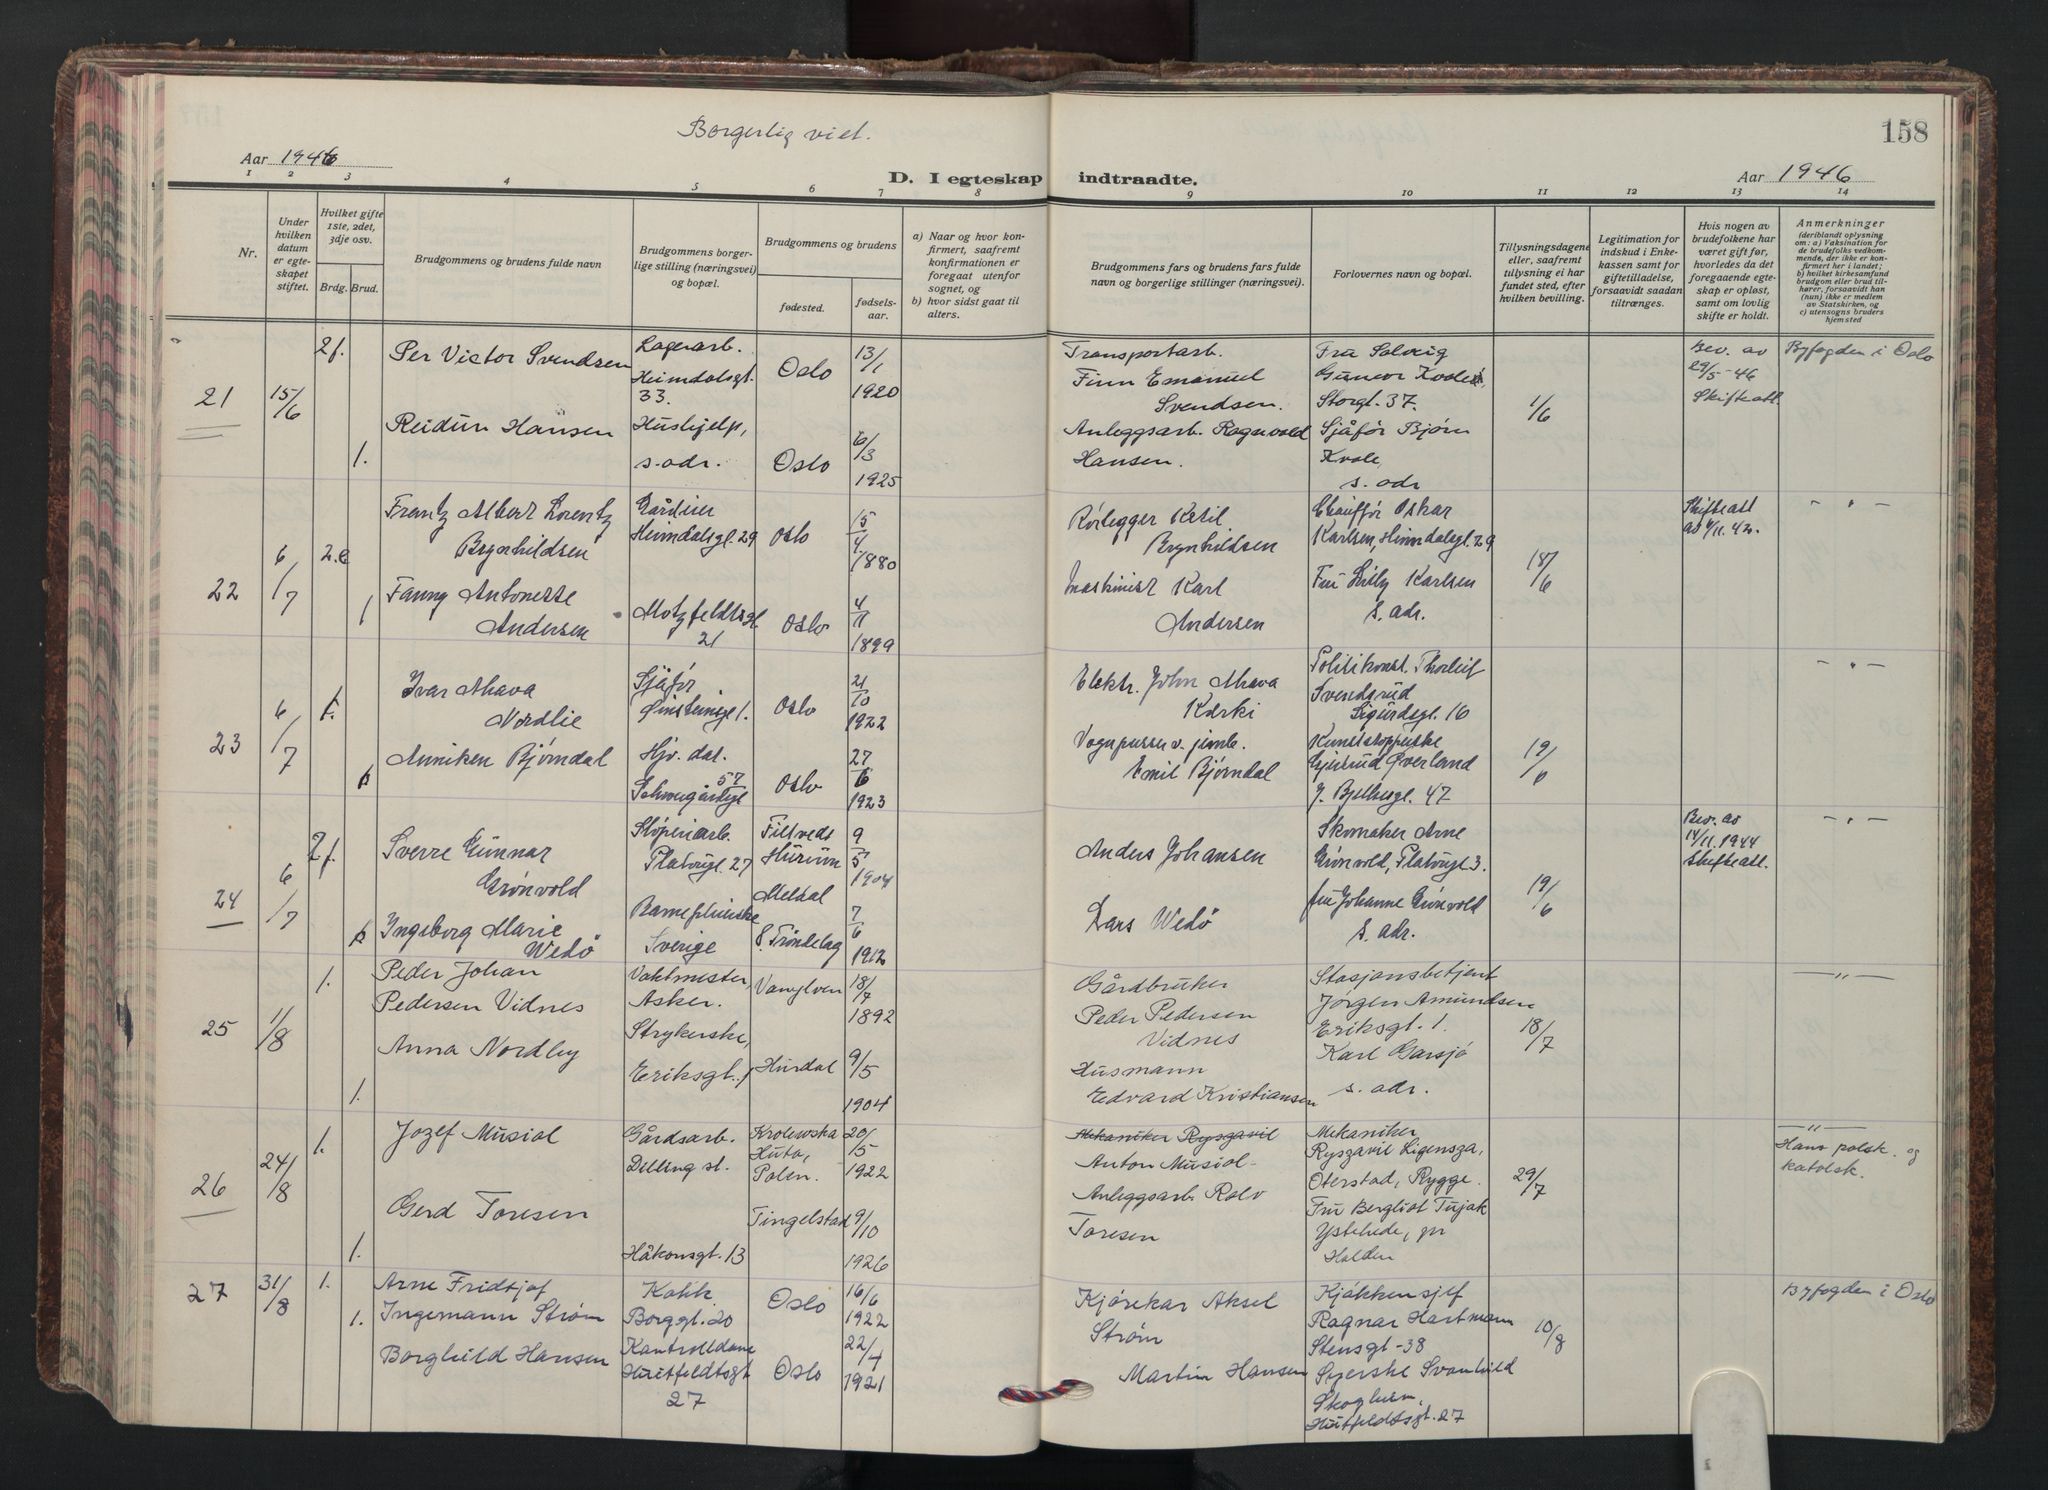 Borgerlig viet.
158
Aar 1946
Aar 1946
D. I egteskap indtraadte.
1 2 3 4 5 6 7 8 9 10 11 12 13 14
Nr.
Under hvilken datum er egte-skapet stiftet.
Hvilket gifte 1ste, 2det, 3dje osv.
Brdg. Brud.
Brudgommens og brudens fulde navn
Brudgommens borger-lige stilling (næringsvei) og bopæl.
Brudgommens og brudens
fødested.
fødsels-aar.
a) Naar og hvor kon-firmert, saafremt konfirmationen er foregaat utenfor sognet, og
b) hvor sidst gaat til alters.
Brudgommens fars og brudens fars fulde navn og borgerlige stillinger (næringsvei).
Forlovernes navn og bopæl.
Tillysningsdagene eller, saafremt tillysning ei har fundet sted, efter hvilken bevilling.
Legitimation for indskud i Enke-kassen samt for giftetilladelse, forsaavidt saadan tiltrænges.
Hvis nogen av brudefolkene har været gift før, hvorledes da det foregaaende egte-skap er opløst, samt om lovlig skifte er holdt.
Anmerkninger
(deriblandt oplysning om: a) Vaksination for de brudefolks vedkom-mende, der ikke er kon-firmert her i landet; b) hvilket kirkesamfund brudgom eller brud til-hører, forsaavidt han (hun) ikke er medlem av Statskirken, og c) utensogns bruders hjemsted
21 15/6 2f. Per Victor Svendsen
Lagerarb. Heimdalsgt. 33.
Oslo 13/1 1920
Transportarb. Finn Emanuel Svendsen.
Fru Solveig Gunvor Kvale, Storgt. 37.
1/6
Bev. av 29/5-46 Skifteatt.
Byfogden i Oslo
1. Reidun Hansen
Hushjelp, s. adr.
Oslo 6/3 1925
Anleggsarb. Ragnvald Hansen.
Sjåfør Bjørn Kvale, s. adr
22 6/7 2.e Frantz Albert Lorentz Brynhildsen
Gårdeier Heimdalsgt. 29
Oslo 15/4 1880
Rørlegger Ketil Brynhildsen
Chauffør Oskar Karlsen, Heimdalsgt. 29
18/6
Skifteatt av 4/11. 42.
- " -
1 Fanny Antonette Andersen
Motzfeldtsgt. 21
Oslo 4/11 1899
Maskinist Karl Andersen
Fru Lilly Karlsen s. adr.
23 6/7 1. Ivar Mava Nordlie
Sjåfør
Oslo 21/10 1922
Elektr. John Mava Koski
Politikonst. Thorleif Svendsrud Sigurdsgt. 16
19/6
- " -
Anniken Bjørndal
Hjv. dat. Schweigårdsgt 57
Oslo 27/6 1923
Vognpusser v. jernb. Emil Bjørndal
Kunststopperske Gjertrud Øverland J. Bjelkesgt. 47
24 6/7 2f. Sverre Gunnar Grønvold
Støperiarb. Platousgt. 27
Filtvedt Hurum 9/5 1904
Anders Johansen
Skomaker Arne Grønvold, Platousgt 3.
19/6
Bev. av 14/11. 1944 Skifteatt.
- " -
Ingeborg Marie Wedø
Barnepleierske Sverige
Meldal S. Trøndelag 7/6 1912
Lars Wedø
fru Johanne Grønvold s. adr.
25 1/8 1. Peder Johan Pedersen Vidnes
Vaktmester, Asker.
Vanylven 18/7 1892
Gårdbruker Peder Pedersen Vidnes
Stasjonsbetjent Jørgen Amundsen Eriksgt. 1.
18/7
- " -
1. Anna Nordby
Strykerske, Eriksgt. 1
Hurdal 9/5 1904
Husmann Edvard Kristiansen
Karl Garsjø s. adr.
26 24/8 1. Jozef Musiol
Gårdsarb. Dilling st.
Krolewska Huta, Polen. 20/5 1922
Mekaniker Ryszavil
Anton Musiol
Mekaniker Ryszavil Ligensza, Oterstad, Rygge.
29/7
- " -
Hans polsk og katolsk.
1. Gerd Toresen
Håkonsgt. 13
Tingelstad 9/10 1926
Anleggsarb. Rolv Toresen
Fru Bergliot Tujak Ystehede, pr Halden
27 31/8 1. Arne Fridtjof Ingemann Strøm
Kokk Borggt. 20
Oslo 16/6 1922
Kjørekar Aksel Strøm
Kjøkkensjef Ragnar Hartmann Stensgt-38
10/8
Byfogden i Oslo
1. Borghild Hansen
Kontrolldame Huitfeldtsgt 27
Oslo 22/4 1921
Martin Hansen
Syerske Svanhild Skogheim, Huitfeldtsgt. 27